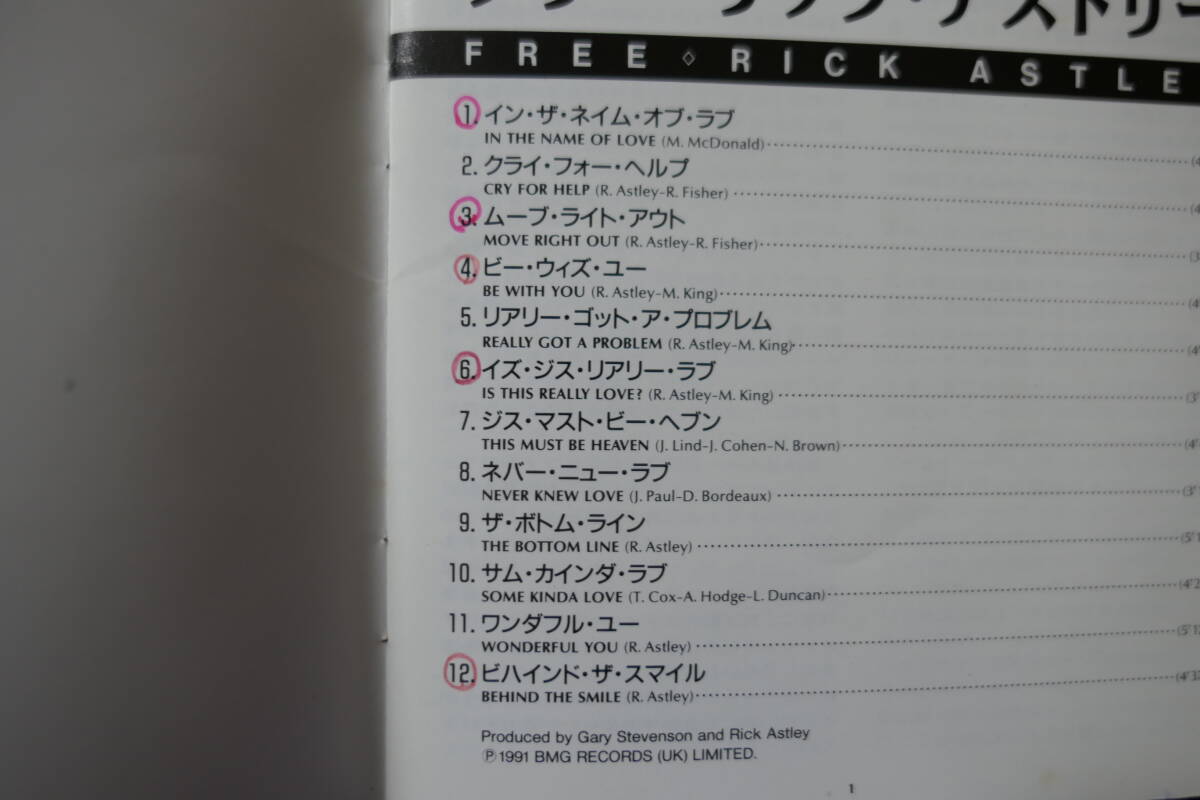 FREE ◇ RICK ASTLE
1. イン・ザ・ネイム・オブ・ラブ
IN THE NAME OF LOVE (M. McDonald)
2. クライ・フォー・ヘルプ
CRY FOR HELP (R. Astley-R. Fisher)
3. ムーブ・ライト・アウト
MOVE RIGHT OUT (R. Astley-R. Fisher)
4. ビー・ウィズ・ユー
BE WITH YOU (R. Astley-M. King)
5. リアリー・ゴット・ア・プロブレム
REALLY GOT A PROBLEM (R. Astley-M. King)
6. イズ・ジス・リアリー・ラブ
IS THIS REALLY LOVE? (R. Astley-M. King)
7. ジス・マスト・ビー・ヘブン
THIS MUST BE HEAVEN (J. Lind-J. Cohen-N. Brown)
8. ネバー・ニュー・ラブ
NEVER KNEW LOVE (J. Paul-D. Bordeaux)
9. ザ・ボトム・ライン
THE BOTTOM LINE (R. Astley)
10. サム・カインダ・ラブ
SOME KINDA LOVE (T. Cox-A. Hodge-L. Duncan)
11. ワンダフル・ユー
WONDERFUL YOU (R. Astley)
12. ビハインド・ザ・スマイル
BEHIND THE SMILE (R. Astley)
Produced by Gary Stevenson and Rick Astley
Ⓟ1991 BMG RECORDS (UK) LIMITED.
1